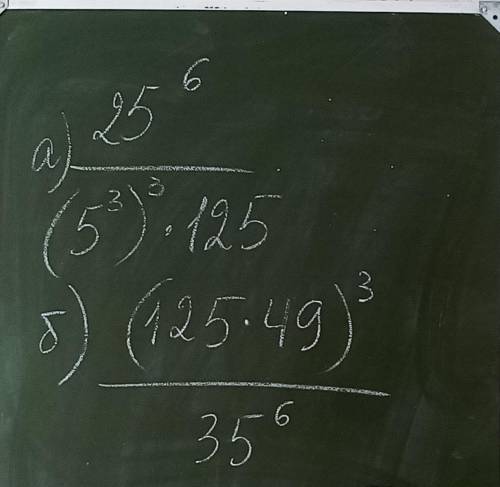 а) 25⁶
(5³)³ · 125
б) (125 · 49)³
35⁶